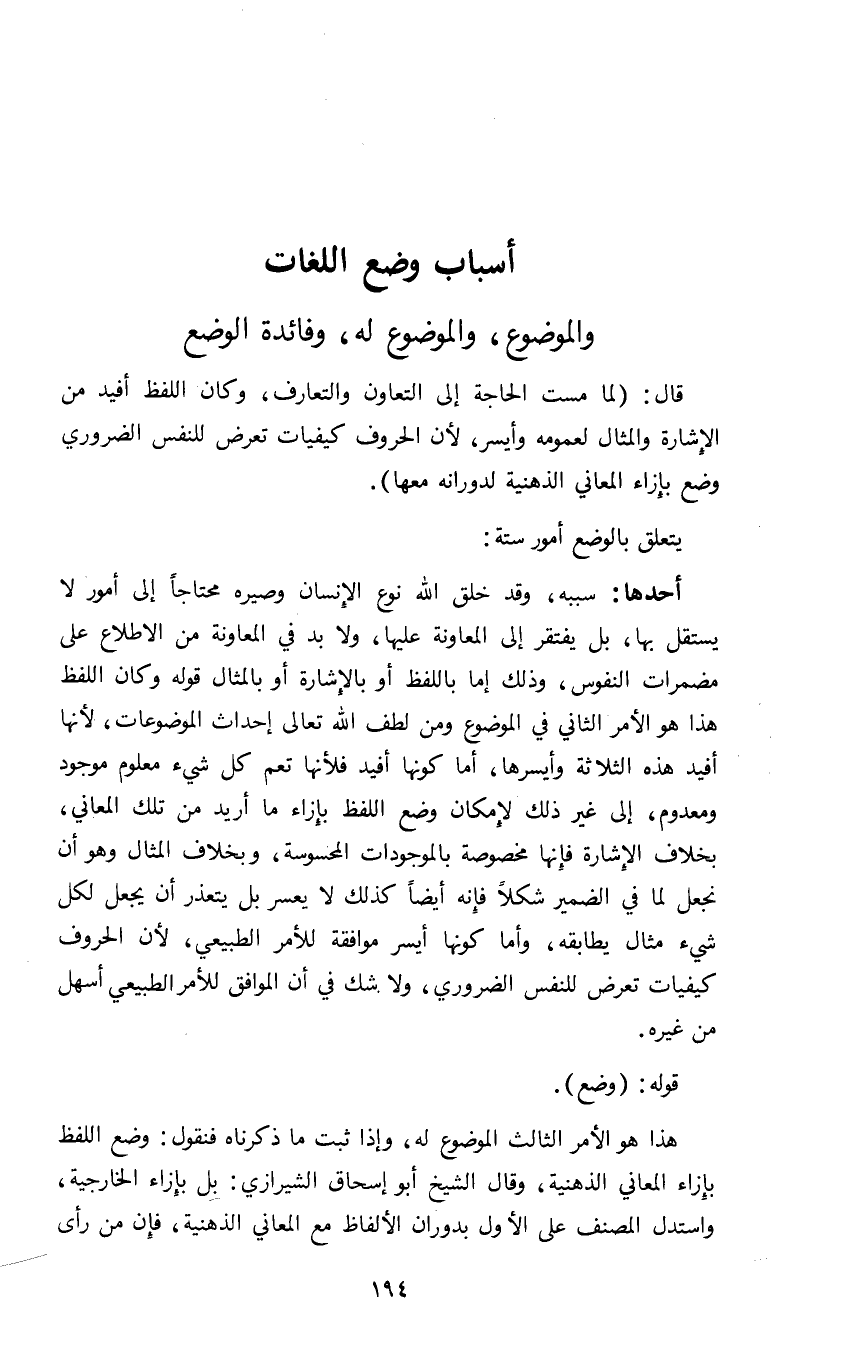 أسباب وضع اللغات
والموضوع، والموضوع له، وفائدة الوضع
قال: (لما مست الحاجة إلى التعاون والتعارف، وكان اللفظ أفيد من
الإشارة والمثال لعمومه وأيسر، لأن الحروف كيفيات تعرض للنفس الضروري
وضع بإزاء المعاني الذهنية لدورانه معها).
يتعلق بالوضع أمور ستة:
أحدها: سببه، وقد خلق الله نوع الإنسان وصيره محتاجاً إلى أمور لا
يستقل بها، بل يفتقر إلى المعاونة عليها، ولا بد في المعاونة من الاطلاع على
مضمرات النفوس، وذلك إما باللفظ أو بالإشارة أو بالمثال قوله وكان اللفظ
هذا هو الأمر الثاني في الموضوع ومن لطف الله تعالى إحداث الموضوعات، لأنها
أفيد هذه الثلاثة وأيسرها، أما كونها أفيد فلأنها تعم كل شيء معلوم موجود
ومعدوم، إلى غير ذلك لإمكان وضع اللفظ بإزاء ما أريد من تلك المعاني،
بخلاف الإشارة فإنها مخصوصة بالموجودات المحسوسة، وبخلاف المثال وهو أن
نجعل لما في الضمير شكلاً فإنه أيضاً كذلك لا يعسر بل يتعذر أن يجعل لكل
شيء مثال يطابقه، وأما كونها أيسر موافقة للأمر الطبيعي، لأن الحروف
كيفيات تعرض للنفس الضروري، ولا شك في أن الموافق للأمر الطبيعي أسهل
من غيره.
قوله: (وضع).
هذا هو الأمر الثالث الموضوع له، وإذا ثبت ما ذكرناه فنقول: وضع اللفظ
بإزاء المعاني الذهنية، وقال الشيخ أبو إسحاق الشيرازي: بل بإزاء الخارجية،
واستدل المصنف على الأول بدوران الألفاظ مع المعاني الذهنية، فإن من رأى
١٩٤